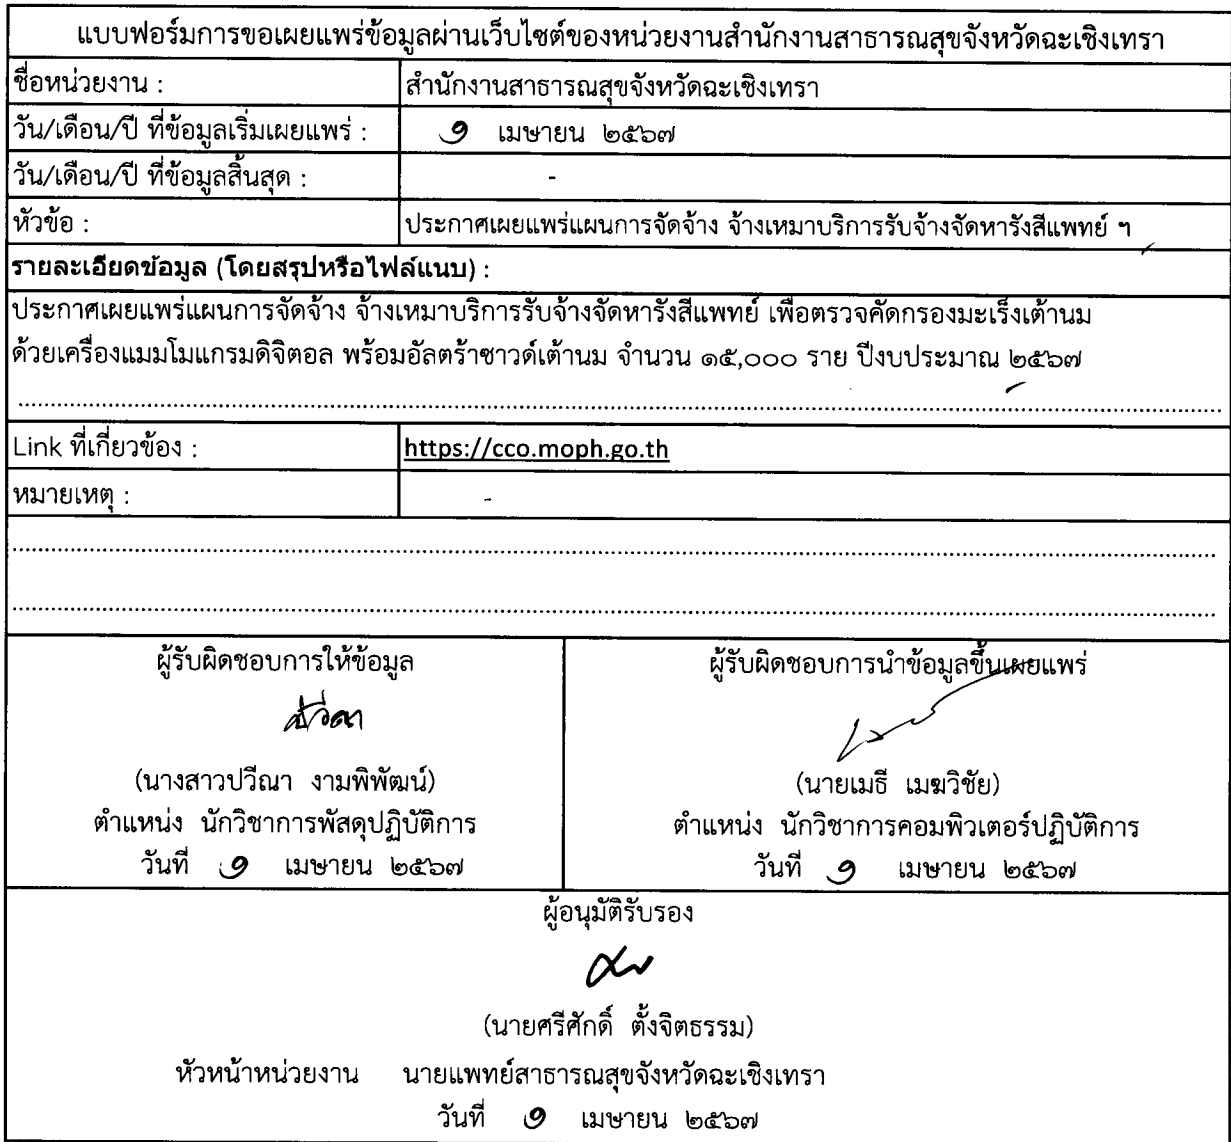 แบบฟอร์มการขอเผยแพร่ข้อมูลผ่านเว็บไซต์ของหน่วยงานสำนักงานสาธารณสุขจังหวัดฉะเชิงเทรา
ชื่อหน่วยงาน : สำนักงานสาธารณสุขจังหวัดฉะเชิงเทรา
วัน/เดือน/ปี ที่ข้อมูลเริ่มเผยแพร่ : ๑ เมษายน ๒๕๖๗
วัน/เดือน/ปี ที่ข้อมูลสิ้นสุด : -
หัวข้อ : ประกาศเผยแพร่แผนการจัดจ้าง จ้างเหมาบริการรับจ้างจัดหารังสีแพทย์ ฯ
รายละเอียดข้อมูล (โดยสรุปหรือไฟล์แนบ) :
ประกาศเผยแพร่แผนการจัดจ้าง จ้างเหมาบริการรับจ้างจัดหารังสีแพทย์ เพื่อตรวจคัดกรองมะเร็งเต้านม
ด้วยเครื่องแมมโมแกรมดิจิตอล พร้อมอัลตร้าซาวด์เต้านม จำนวน ๑๕,๐๐๐ ราย ปีงบประมาณ ๒๕๖๗
Link ที่เกี่ยวข้อง : https://cco.moph.go.th
หมายเหตุ : -
ผู้รับผิดชอบการให้ข้อมูล
ปวีณา
(นางสาวปวีณา งามพิพัฒน์)
ตำแหน่ง นักวิชาการพัสดุปฏิบัติการ
วันที่ ๑ เมษายน ๒๕๖๗
ผู้รับผิดชอบการนำข้อมูลขึ้นเผยแพร่
(นายเมธี เมฆวิชัย)
ตำแหน่ง นักวิชาการคอมพิวเตอร์ปฏิบัติการ
วันที่ ๑ เมษายน ๒๕๖๗
ผู้อนุมัติรับรอง
(นายศรีศักดิ์ ตั้งจิตธรรม)
หัวหน้าหน่วยงาน นายแพทย์สาธารณสุขจังหวัดฉะเชิงเทรา
วันที่ ๑ เมษายน ๒๕๖๗